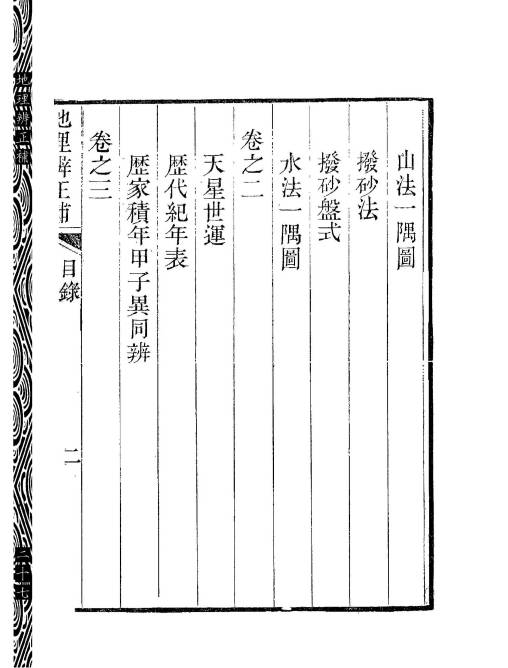 山法一隅圖
撥砂法
撥砂盤式
水法一隅圖
卷之二
天星世運
歷代紀年表
歷家積年甲子異同辨
卷之三
地理辨正補
目錄
二
地理辨正補
二十七